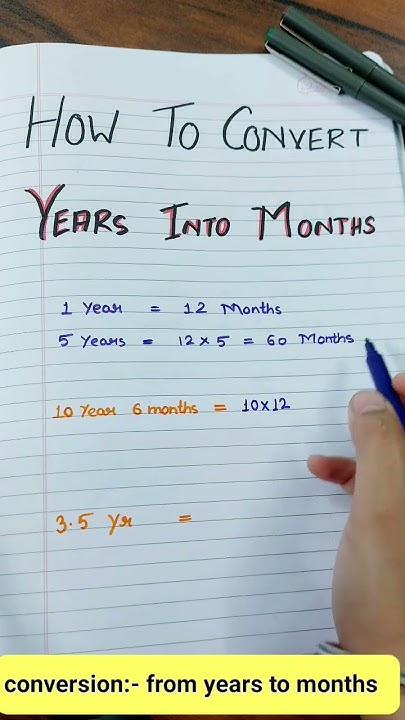 HOW TO CONVERT
YEARS INTO MONTHS
1 Year = 12 Months
5 Years = 12 × 5 = 60 Months
10 Year 6 months = 10×12
3.5 Yr =
conversion:- from years to months